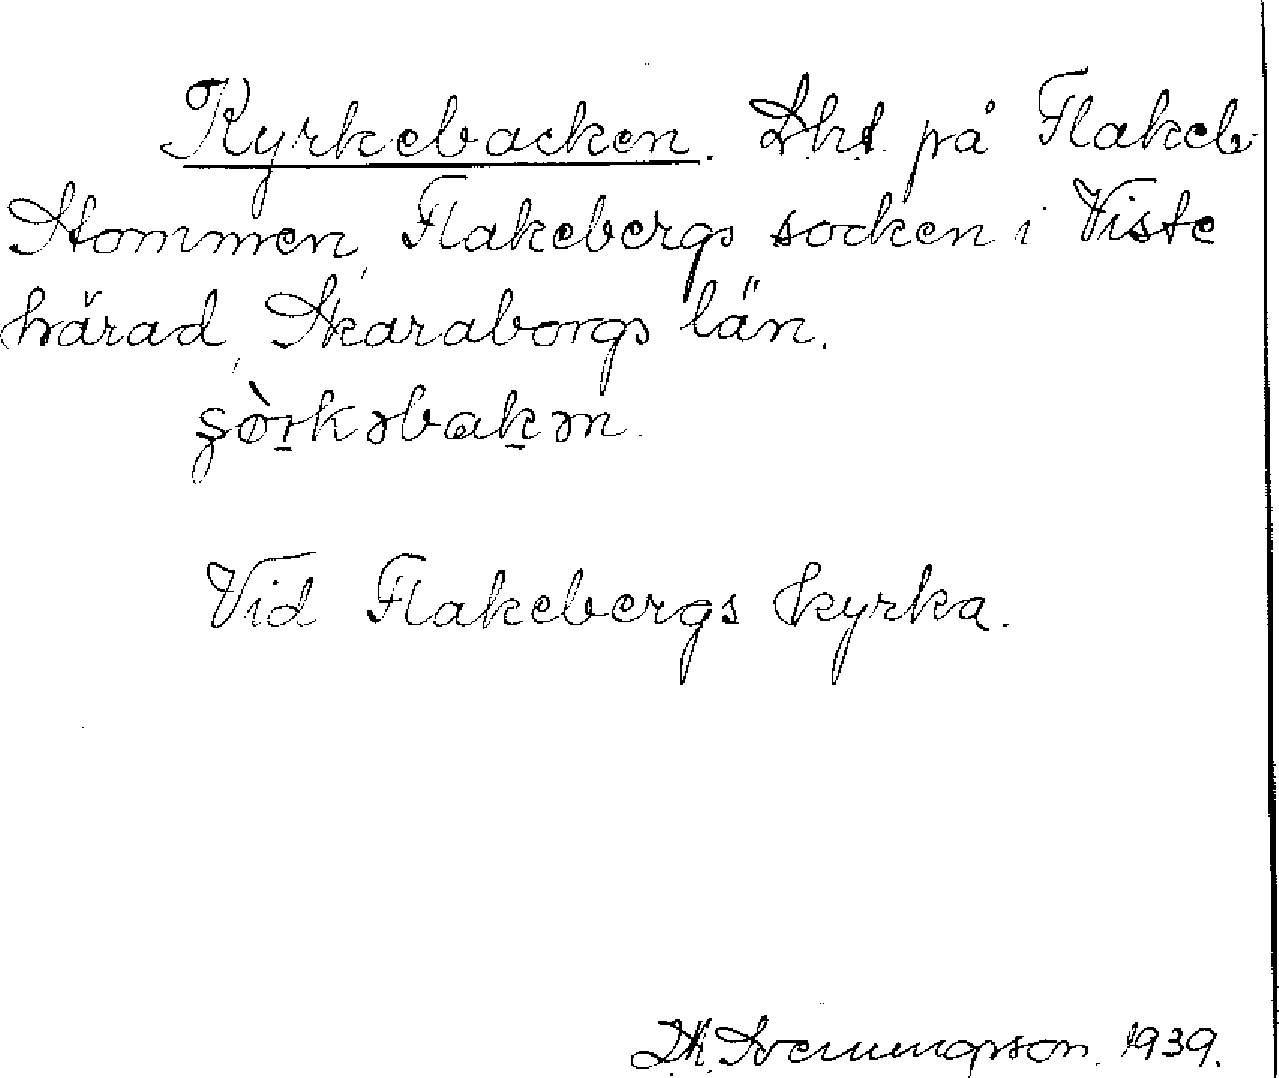 Kyrkebacken. Lht på Flakeb
Stommen, Flakebergs socken i Viste
härad, Skaraborgs län.
Vid Flakebergs kyrka.
Svenungsson. 1939.